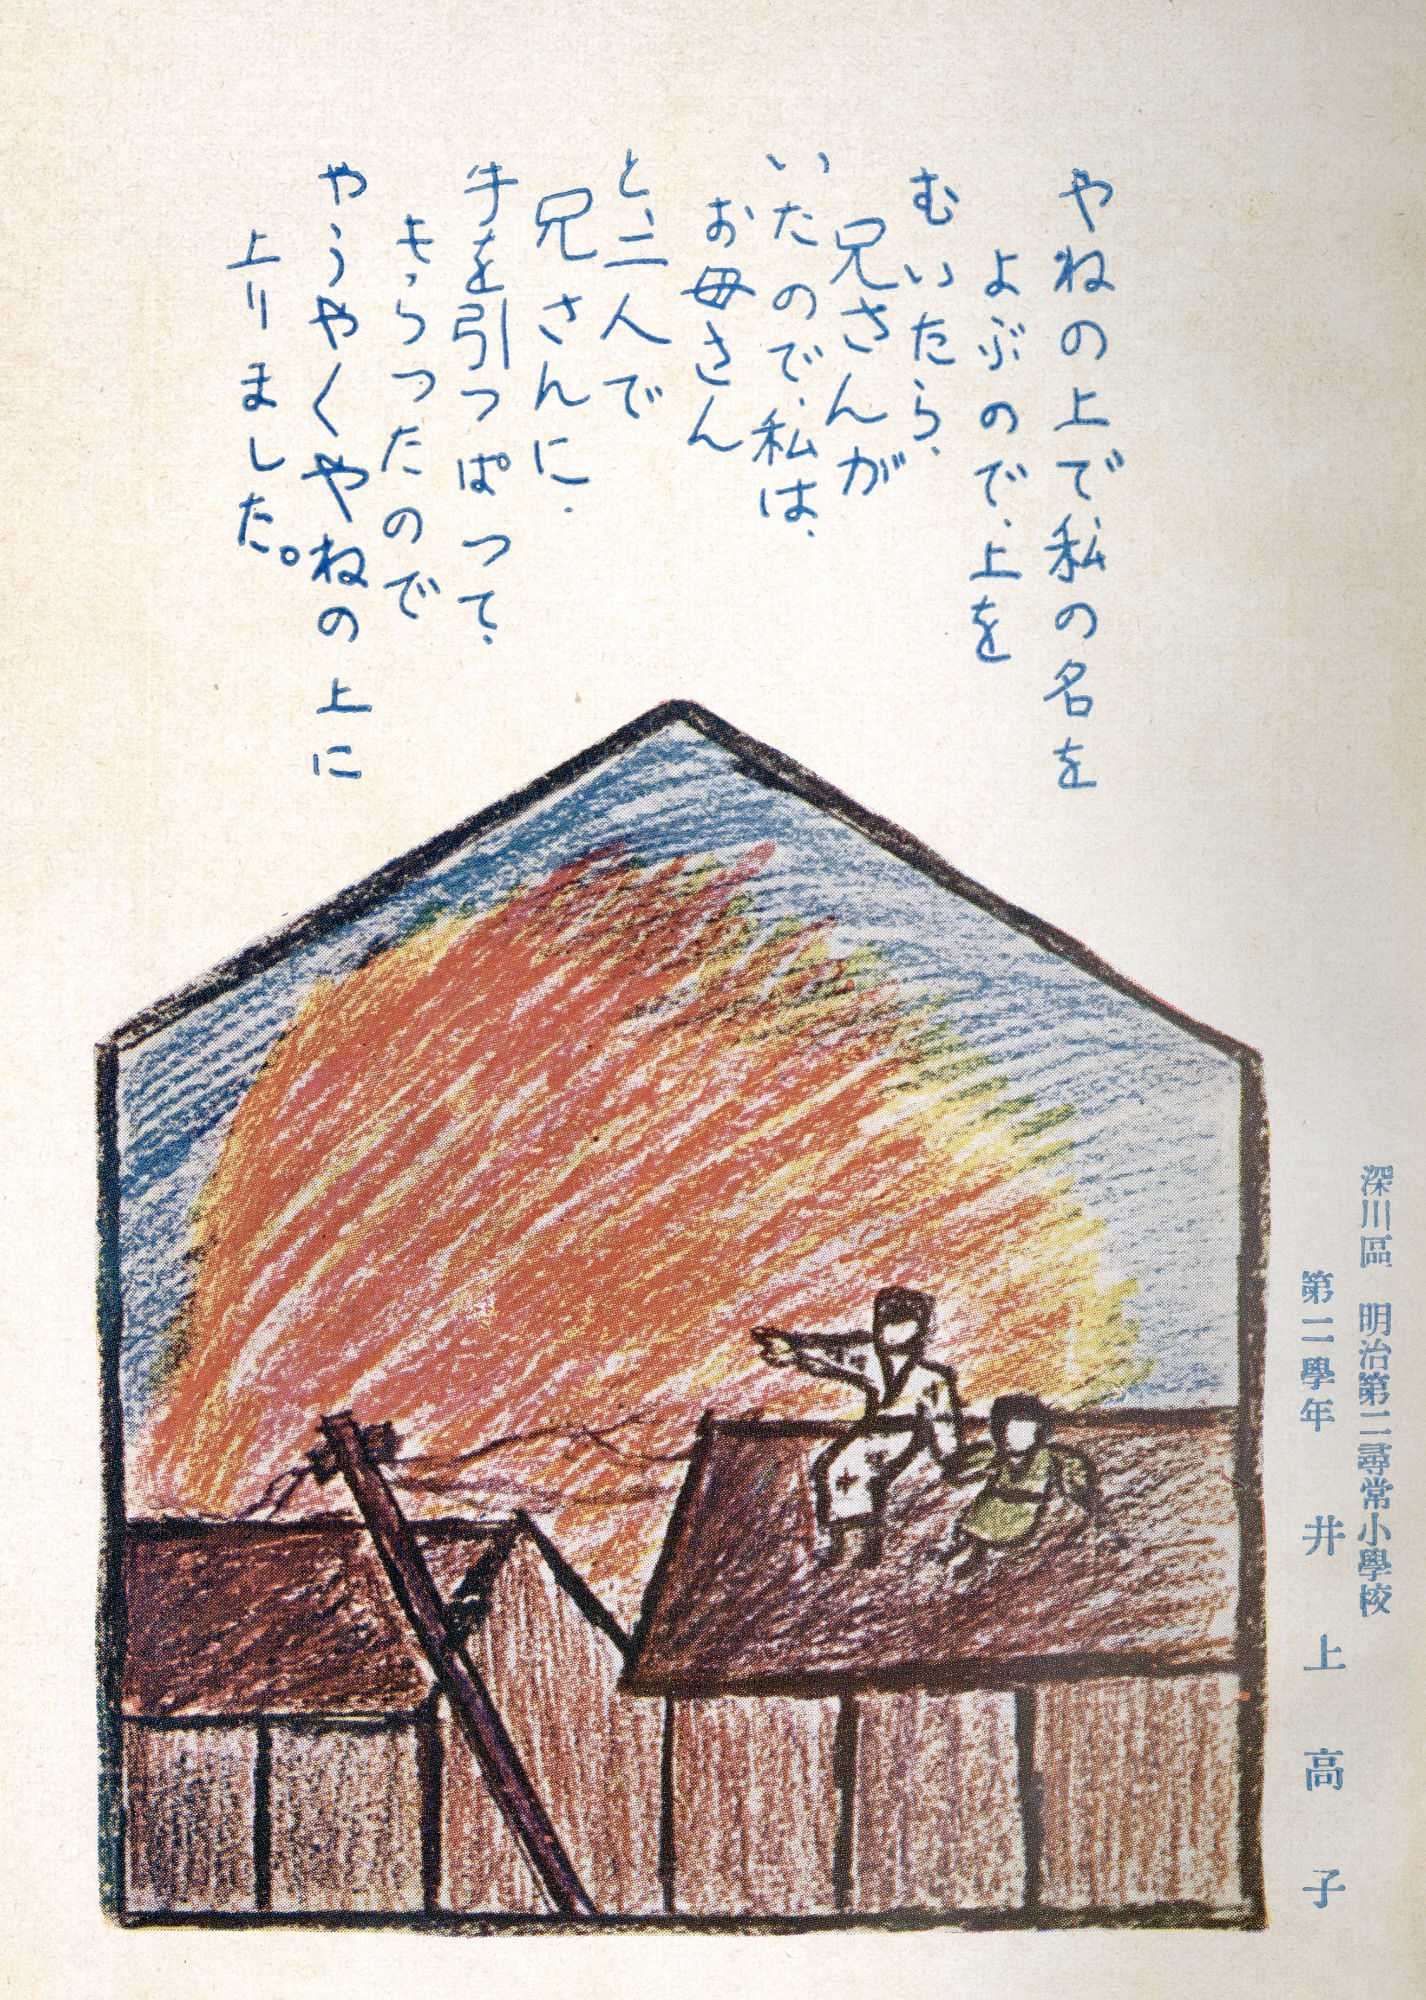 やねの上で、私の名を
よぶので、上を
むいたら、
兄さんが
いたので、私は、
お母さん
と、二人で
兄さんに、
手を引っぱつて、
もらつたので
やうやくやねの上に
上りました。
深川區 明治第二尋常小學校
第二學年 井上高子